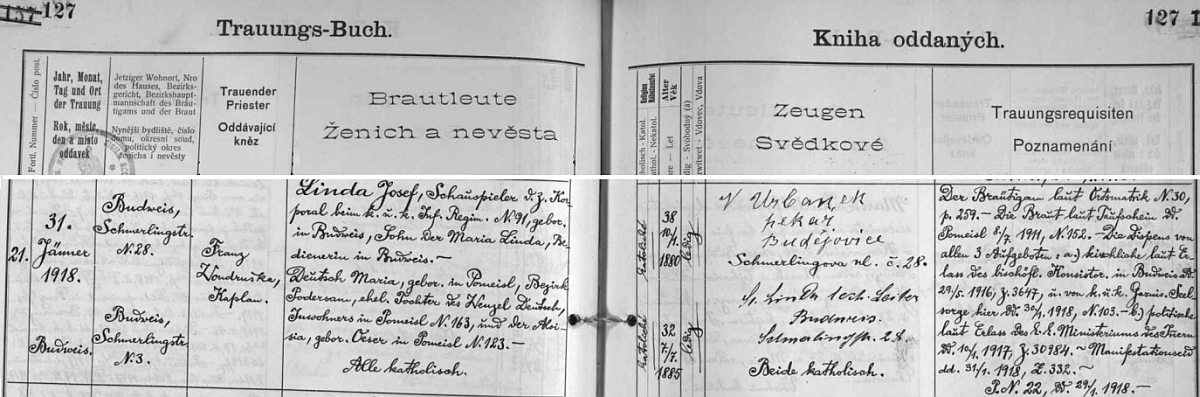 157 127
Trauungs-Buch.
Fortl. Nummer — Číslo post.
Jahr, Monat,
Tag und Ort
der Trauung
Rok, měsíc,
den a místo
oddavek
Jetziger Wohnort, Nro
des Hauses, Bezirks-
gericht, Bezirkshaupt-
mannschaft des Bräu-
tigams und der Braut
Nynější bydliště, číslo
domu, okresní soud,
politický okres
ženicha i nevěsty
Trauender
Priester
Oddávající
kněz
Brautleute
Ženich a nevěsta
21.
31.
Jänner
1918.
Budweis.
Budweis,
Schmerlingstr.
N. 28.
Budweis,
Schmerlingstr.
N. 3.
Franz
Wondruška,
Kaplan.
Linda Josef, Schauspieler d. Z. Kor-
poral beim k. u. k. Inf. Regim. N. 91, gebor.
in Budweis, Sohn der Maria Linda, Be-
dienerin in Budweis. —
Deutsch Maria, gebor. in Pomeisl, Bezirk
Podersam, ehel. Tochter des Wenzel Deutsch,
Inwohners in Pomeisl N. 163, und der Aloi-
sia, gebor. Oeser in Pomeisl N. 123. —
Alle katholisch.
127
Kniha oddaných.
Alter
Věk
Zeugen
Svědkové
Trauungsrequisiten
Poznamenání
katolické
38
10/1.
1880
ledig
katolické
32
7/7.
1885
ledig
Urbanek
pekař
Budějovice
Schmerlingova ul. č. 28.
Linda
Budweis.
28.
Beide katholisch.
Der Bräutigam laut Ortsmatrik N. 30,
p. 259. — Die Braut laut Taufschein dd.
Pomeisl 8/7. 1911, N. 152. — Die Dispens von
allen 3 Aufgeboten: a.) kirchliche laut Er-
lass des bischöfl. Konsistor. in Budweis dd.
29/5. 1916, Z. 3647, u. von k. u. k. Garnis. Seel-
sorge hier dd. 30/1. 1918, N. 103. — b.) politische
laut Erlass des k. k. Ministeriums des Innern
dd. 10/1. 1917, Z. 30984. — Manifestationseid
dd. 31/1. 1918, Z. 332. —
P. N. 22, dd. 29/1. 1918. —